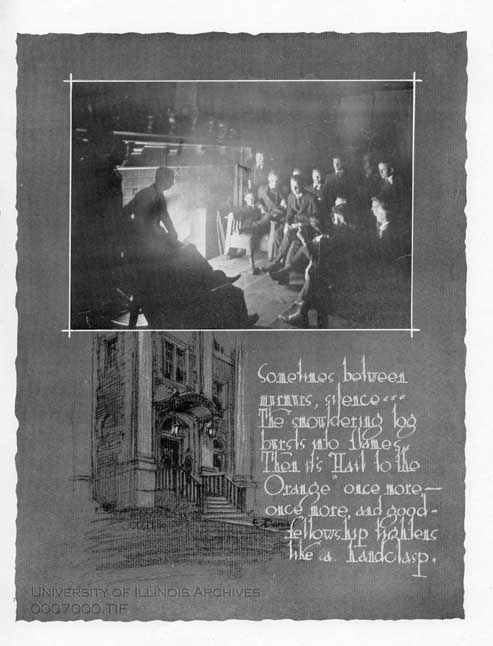 Sometimes between
murmurs, silence...
The smouldering log
bursts into flames.
Then it's "Hail to the
Orange" once more—
once more, and good-
fellowship tightens
like a handclasp.
UNIVERSITY OF ILLINOIS ARCHIVES
0007000.TIF